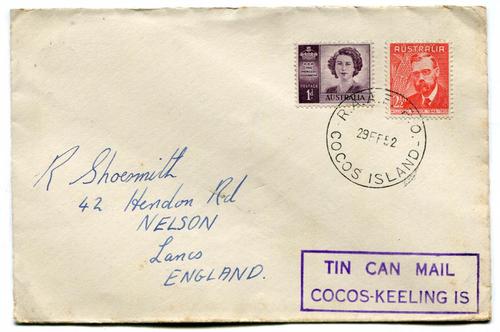 POSTAGE
1D
AUSTRALIA
AUSTRALIA
2½D
R.A.A.F. P.O.
29 FE 52
COCOS ISLAND
R Shoesmith
42 Hendon Rd
NELSON
Lancs
ENGLAND.
TIN CAN MAIL
COCOS-KEELING IS